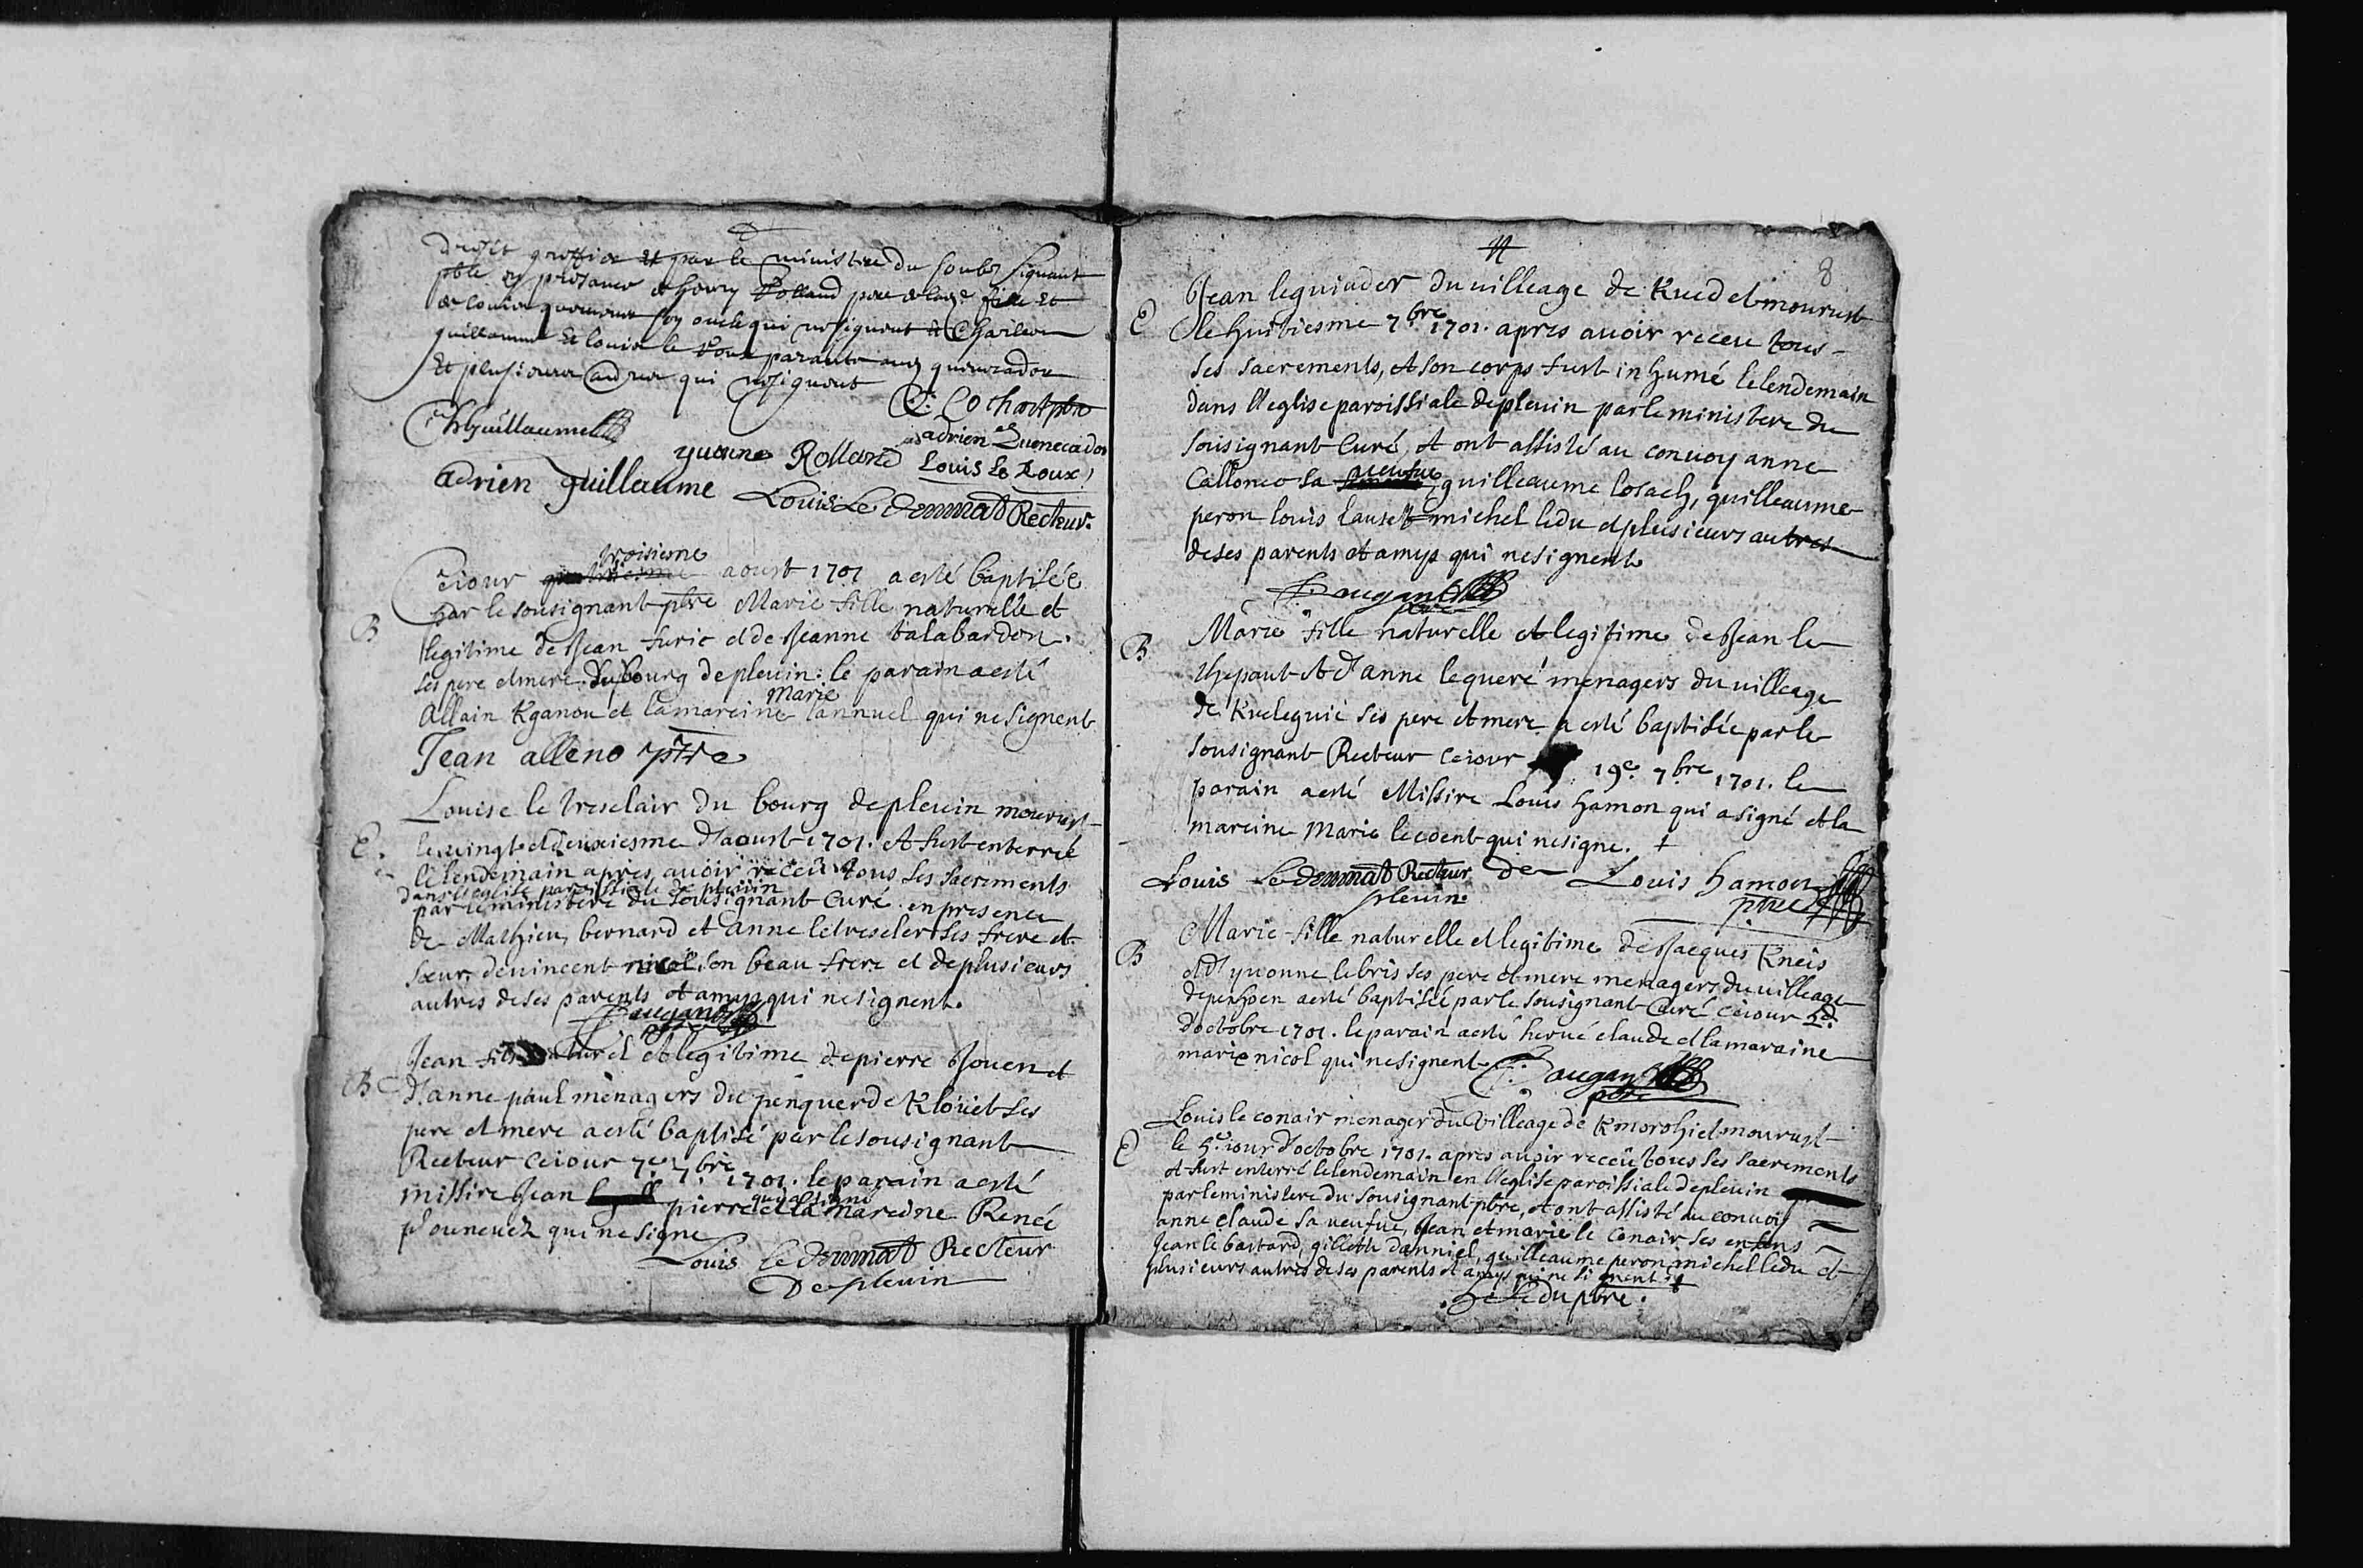 droit et par le ministere du soubs signant
pbre en presance de henry Rolland pere de lad. fille et
de louise son oncle qui ne signent et Charleon
guillaume et louis le Roux parants aux quenecadou
Et plusieurs autres qui ne signent
Cochart pbre
Ch Guillaume
yuonne Rolland adrien Quenecadou
Louis Le Roux
adrien guillaume Louis Le dennmat Recteur
troisieme
Ceiour aoust 1701 a esté baptisée
par le sousignant pbre Marie fille naturelle et
B
legitime de Jean furic et de Jeanne talabardon
ses pere et mere du bourg de pleuin: le parain a esté
Marie
Allain Kganou et la mareine lannuel qui ne signent
Jean alleno ptre
Louise le treselair du bourg de pleuin mourust
E.
le uingt et deuxiesme d'aoust 1701. et fust enterré
le lendemain apres auoir receü tous ses sacrements
dans l'eglise paroissiale de pleuin
par le ministere du sousignant Curé en presence
de Mathieu, bernard et anne le treseler ses frere et
sœur, de uincent nicol son beau frere et de plusieurs
autres de ses parents et amys qui ne signent.
F: augan
pbre
Jean fils naturel et legitime de pierre Jouen et
B
d'anne paul menagers du penquer de Klouet ses
pere et mere a esté baptisé par le sousignant
Recteur ceiour 7e 7bre 1701. le parain a esté
qui a signé
missire Jean pierre et la mareine Renée
plouneuez qui ne signe
Louis Le dennmat Recteur
De pleuin
8
Jean leguiader du uilleage de Kued et mourust
E
le huitiesme 7bre 1701. apres auoir receu tous
ses sacrements, et son corps fust inhumé le lendemain
dans l'eglise paroissiale de pleuin par le ministere du
sousignant Curé, et ont assisté au conuoy anne
ueufue
Callonec sa guilleaume losach, guilleaume
peron louis lauset michel ledu et plusieurs autres
de ses parents et amys qui ne signent
F: augan
pbre
Marie fille naturelle et legitime de Jean le
B
thepaut et d'anne le queré menagers du uilleage
de Kueleguié ses pere et mere a esté baptisée par le
sousignant Recteur ceiour 19e. 7bre 1701. le
parain a esté Missire Louis hamon qui a signé et la
mareine Marie lecoent qui ne signe.
Louis Le dennmat Recteur de Louis hamon
pleuin. ptre
Marie fille naturelle et legitime de Jacques Kneis
B
et d'yuonne lebris ses pere et mere menagers du uilleage
de penhoen a esté baptisée par le sousignant Curé ceiour 2d.
d'octobre 1701. le parain a esté herué claude et la maraine
marie nicol qui ne signent
F: augan
pbre
Louis le conair menager du Villeage de Kmorohiet mourust
E
le 5e. iour d'octobre 1701. apres auoir receü tous ses sacrements
et fust enterré le lendemain en l'eglise paroissiale de pleuin
par le ministere du sousignant pbre, et ont assisté au conuoy
anne claude sa ueufue, Jean et marie le conair ses enfens
Jean le bastard, gillette danniel, guilleaume peron, michel ledu et
plusieurs autres de ses parents et amys qui ne signent
Ledu pbre.